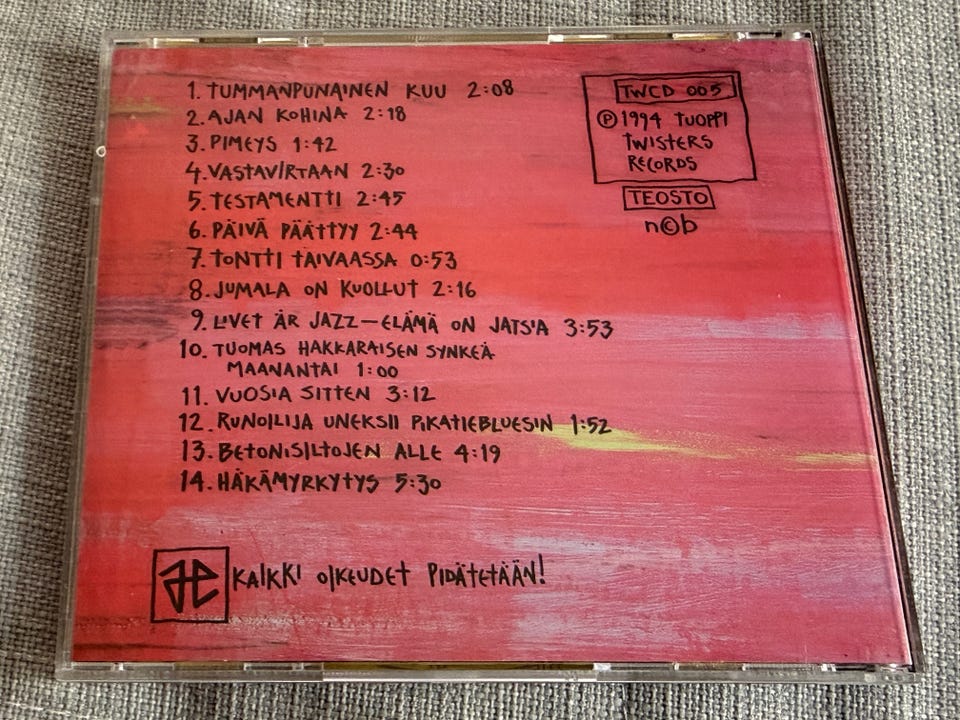 1. TUMMANPUNAINEN KUU 2:08
2. AJAN KOHINA 2:18
3. PIMEYS 1:42
4. VASTAVIRTAAN 2:30
5. TESTAMENTTI 2:45
6. PÄIVÄ PÄÄTTYY 2:44
7. TONTTI TAIVAASSA 0:53
8. JUMALA ON KUOLLUT 2:16
9. LIVET ÄR JAZZ—ELÄMÄ ON JATSIA 3:53
10. TUOMAS HAKKARAISEN SYNKEÄ
MAANANTAI 1:00
11. VUOSIA SITTEN 3:12
12. RUNOILIJA UNEKSII PIKATIEBLUESIN 1:52
13. BETONISILTOJEN ALLE 4:19
14. HÄKÄMYRKYTYS 5:30
TWCD 005
℗ 1994 TUOPPI
TWISTERS
RECORDS
TEOSTO
n©b
KAIKKI OIKEUDET PIDÄTETÄÄN!